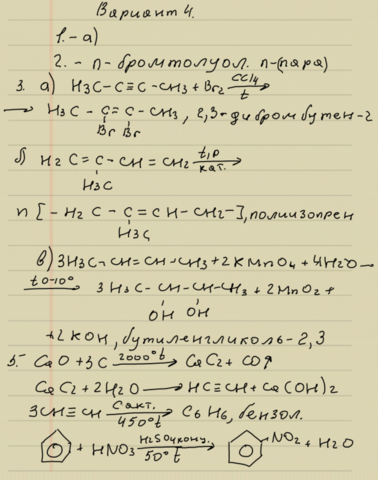 Вариант 4.
1. - а)
2. - п - бромтолуол. п-(пара)
3. а) H3C - C≡C - CH3 + Br2 CCl4 t →
→ H3C - C = C - CH3, 2,3-дибромбутен-2
Br Br
б) H2C = C - CH = CH2 t,p кат. →
H3C
n [-H2C - C = CH - CH2-], полиизопрен
H3C
в) 3H3C - CH = CH - CH3 + 2KMnO4 + 4H2O →
t 0-10° → 3H3C - CH - CH - CH3 + 2MnO2 +
OH OH
+2KOH, бутиленгликоль-2,3
5. CaO + 3C 2000°t → CaC2 + CO↑
CaC2 + 2H2O → HC≡CH + Ca(OH)2
3CH≡CH Cакт. 450°t → C6H6, бензол.
+ HNO3 H2SO4 конц. 50°t → NO2 + H2O